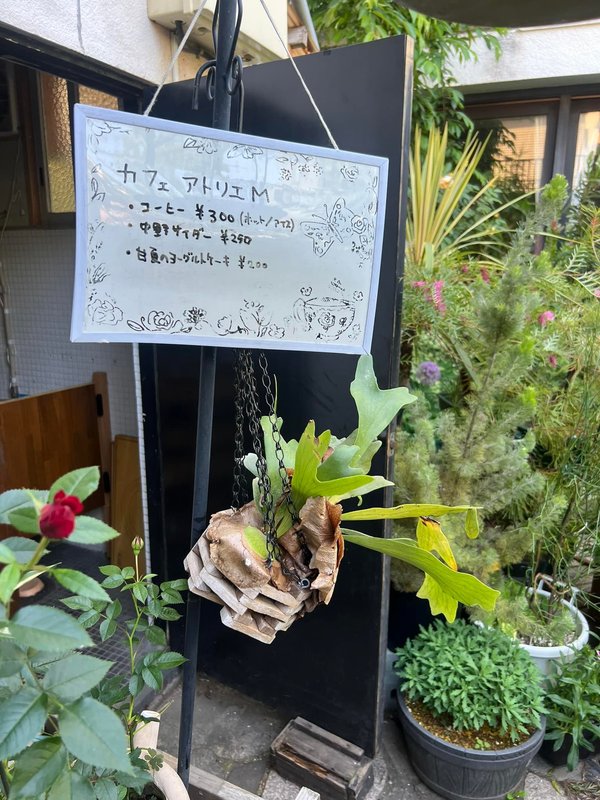 カフェ アトリエM
・コーヒー ¥300 (ホット/アイス)
・中野サイダー ¥250
・ヨーグルトケーキ ¥200